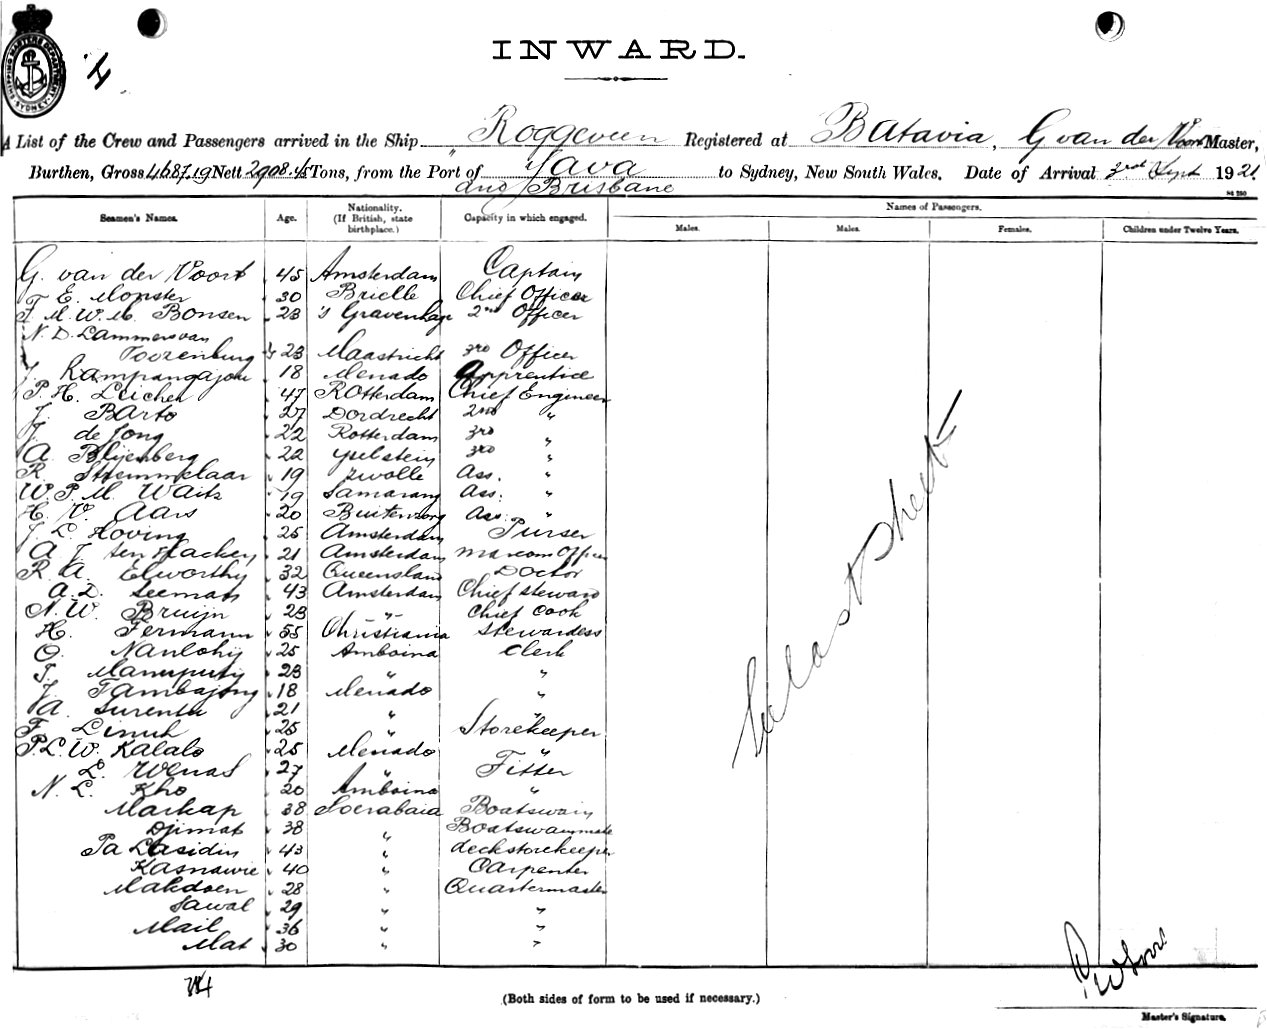 INWARD.
A List of the Crew and Passengers arrived in the Ship Roggeveen Registered at Batavia, G van der Voort Master,
Burthen, Gross 4687.19 Nett 2908.45 Tons, from the Port of Java and Brisbane to Sydney, New South Wales. Date of Arrival 3rd Sept 1921
Seamen's Names. Age. Nationality. (If British, state birthplace.) Capacity in which engaged. Names of Passengers.
Males. Males. Females. Children under Twelve Years.
G. van der Voort 45 Amsterdam Captain
F. E. Monster 30 Brielle Chief Officer
F. M. W. M. Bonsen 28 's Gravenhage 2nd Officer
N. D. Lammers van
Toorenburg 23 Maastricht 3rd Officer
J. Kampongajou 18 Menado Apprentice
P. H. Leicher 47 Rotterdam Chief Engineer
J. Barto 27 Dordrecht 2nd "
J. de Jong 22 Rotterdam 3rd "
A. Blijenberg 22 3rd "
R. Stremmelaar 19 Zwolle Ass. "
W. P. M. Waitz 19 Samarang Ass. "
H. V. Aars 20 Buitenzorg Ass. "
J. L. Koving 25 Amsterdam Purser
A. J. ten Hacken 21 Amsterdam Marconi Officer
R. A. Elworthy 32 Queensland Doctor
A. D. Leeman 43 Amsterdam Chief steward
N. W. Bruijn 28 " Chief Cook
H. Fermann 55 Christiania Stewardess
O. Nanlohij 25 Amboina Clerk
J. Manuputij 28 " "
J. Tambajong 18 Menado "
A. Surentu 21 " "
F. Linuh 25 " Storekeeper
P. L. W. Kalalo 25 Menado "
L. Wenas 27 " Fitter
N. L. Kho 20 Amboina "
Markap 38 Soerabaia Boatswain
Djimat 38 " Boatswainmate
Pa Lasidin 43 " deckstorekeeper
Kasnawie 40 " Carpenter
Makdoen 28 " Quartermaster
Sawal 29 " "
Mail 36 " "
Mat 30 " "
See last sheet
(Both sides of form to be used if necessary.)
Master's Signature.